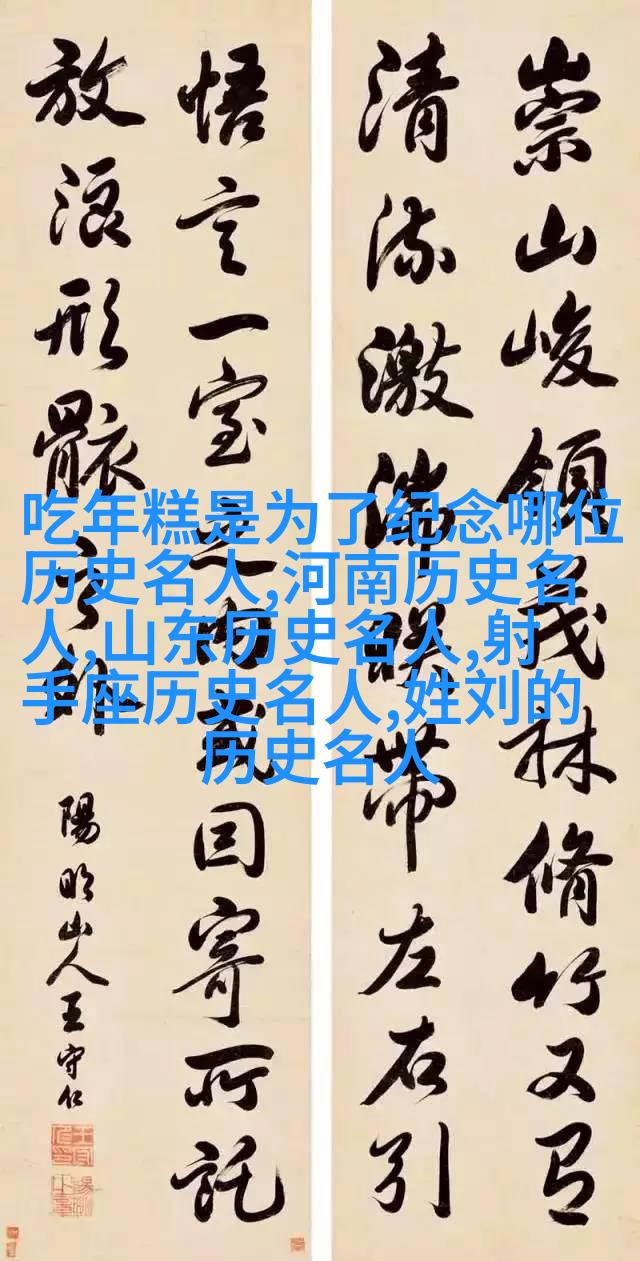 崇山峻領茂林脩竹又有
清流激湍暎帶左右引
悟言一室之內或因寄所託
放浪形骸之外
陽明山人王守仁
吃年糕是为了纪念哪位
历史名人,河南历史名
人,山东历史名人,射
手座历史名人,姓刘的
历史名人